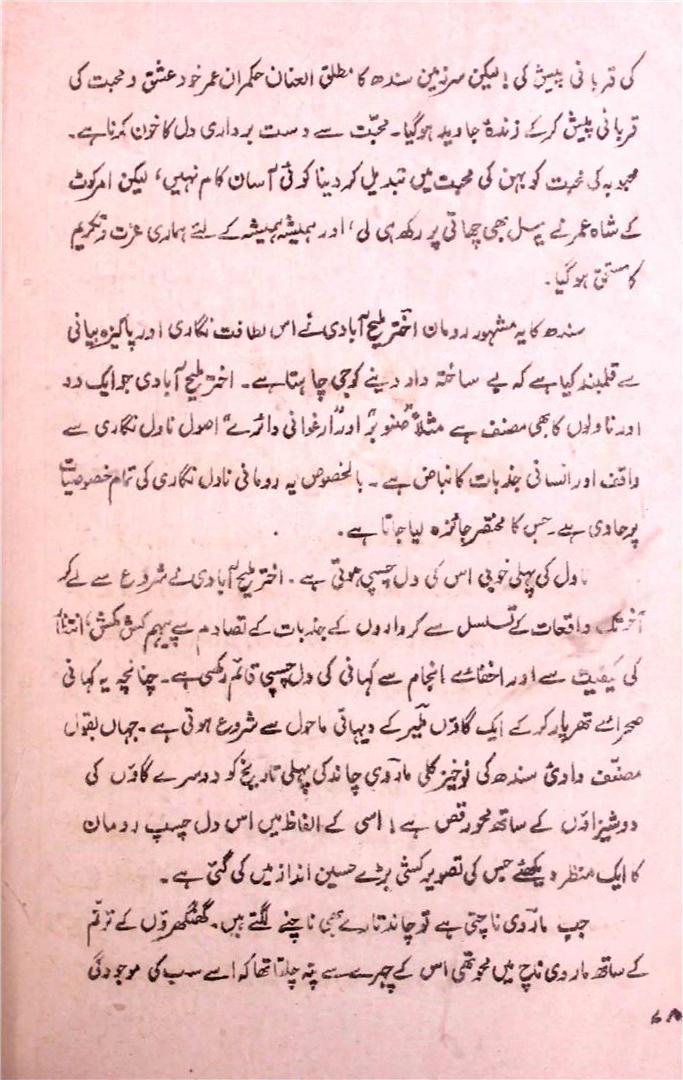 کی قربانی پیش کی! لیکن سرزمین سندھ کا مطلق العنان حکمران عمر خود عشق و محبت کی
قربانی پیش کرکے زندۂ جاوید ہوگیا۔ محبّت سے دست برداری دل کا خون کرنا ہے۔
محبوبہ کی محبت کو بہن کی محبت میں تبدیل کر دینا کوئی آسان کام نہیں، لیکن امرکوٹ
کے شاہ عمر نے یہ سل بھی چھاتی پر رکھ ہی لی، اور ہمیشہ ہمیشہ کے لئے ہماری عزت و تکریم
کا مستحق ہوگیا۔
سندھ کا یہ مشہور رومان اختر ملیح آبادی نے اس لطافت نگاری اور پاکیزہ بیانی
سے قلمبند کیا ہے کہ بے ساختہ داد دینے کو جی چاہتا ہے۔ اختر ملیح آبادی جو ایک دو
اور ناولوں کا بھی مصنف ہے مثلاً "صنوبر" اور "ارغوانی دائرے" اصول ناول نگاری سے
واقف اور انسانی جذبات کا نباض ہے۔ بالخصوص یہ رومانی ناول نگاری کی تمام خصوصیات
پر حاوی ہے۔ جس کا مختصر جائزہ لیا جاتا ہے۔
ناول کی پہلی خوبی اس کی دل چسپی ہوتی ہے۔ اختر ملیح آبادی نے شروع سے لے کر
آخر تک واقعات کے تسلسل سے کرداروں کے جذبات کے تصادم سے پیہم کش مکش،
کی کیفیت سے اور اخفائے انجام سے کہانی کی دل چسپی قائم رکھی ہے۔ چنانچہ یہ کہانی
صحرائے تھرپارکر کے ایک گاؤں ملیر کے دیہاتی ماحول سے شروع ہوتی ہے۔ جہاں بقول
مصنّف وادئ سندھ کی نوخیز کلی ماروی چاند کی پہلی تاریخ کو دوسرے گاؤں کی
دوشیزاؤں کے ساتھ محو رقص ہے! اسی کے الفاظ میں اس دل چسپ رومان
کا ایک منظر دیکھئے جس کی تصویر کشی بڑے حسین انداز میں کی گئی ہے۔
جب ماروی ناچتی ہے تو چاند تارے بھی ناچنے لگتے ہیں۔ گھنگھروؤں کے ترنّم
کے ساتھ ماروی ناچ میں محو تھی اس کے چہرے سے پتہ چلتا تھا کہ اسے سب کی موجودگی